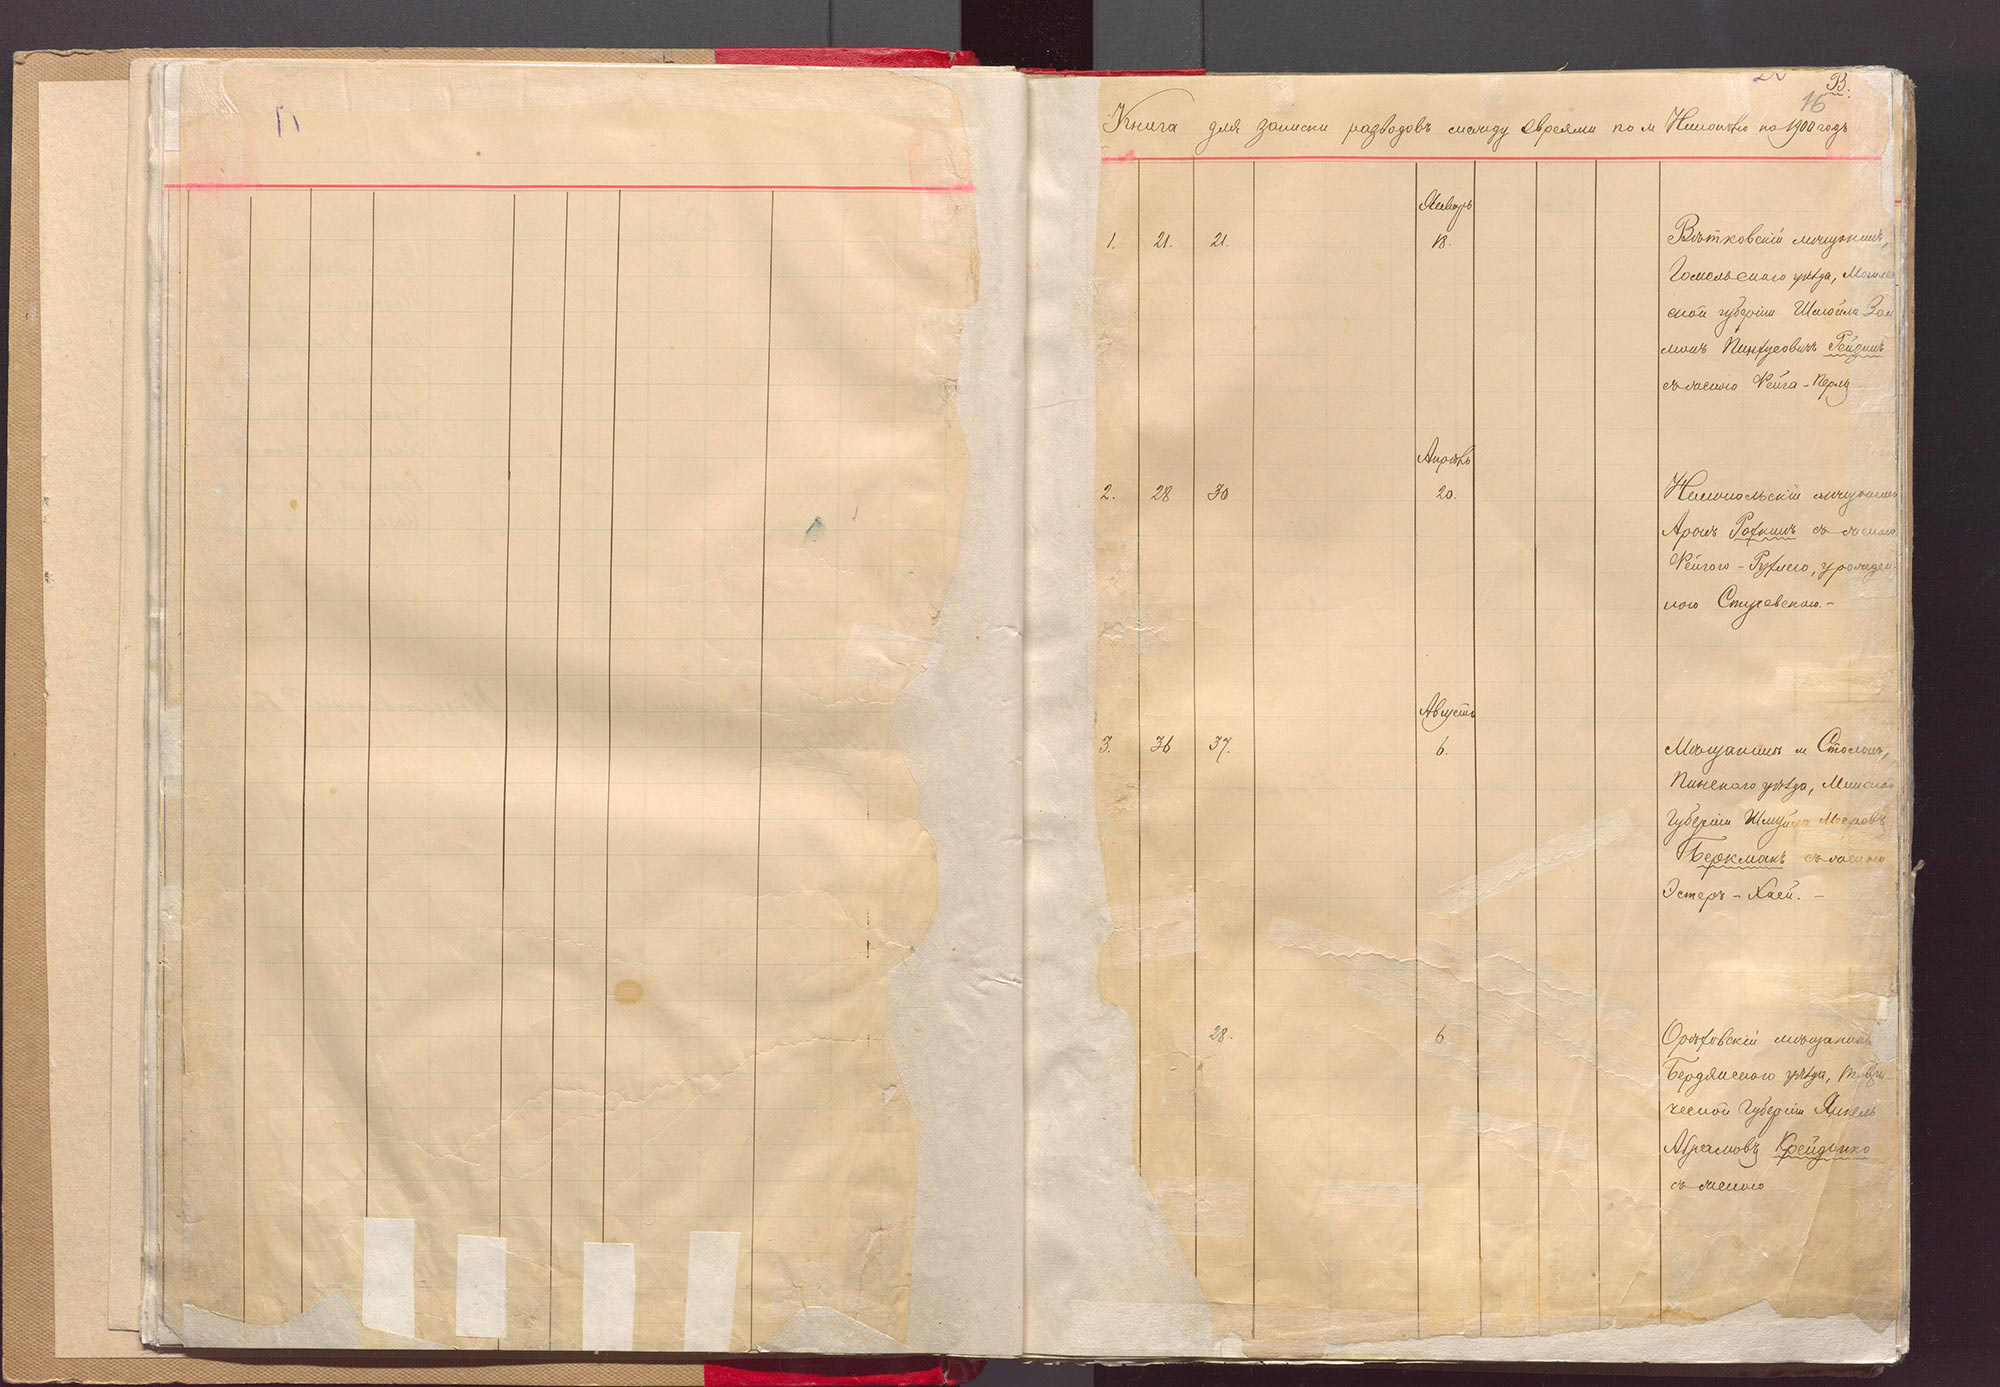 В.
16
Книга для записки разводовъ между евреями по м Никополю на 1900 годъ
Январь
1. 21. 21. 18. Вѣтковскій мещанинъ,
Гомельскаго уѣзда, Могилев
ской губерніи Шмойла Зал
манъ Пинхусовичъ Рейзинъ
съ женою Фейга-Перлу
Апрѣль
2. 28 30 20. Никопольскій мещанинъ
Аронъ Рохкинъ съ женою
Фейгою-Рухлею, урожден
ною
Августъ
3. 36 37. 6. Мѣщанинъ м Столинъ,
Пинскаго уѣзда, Минской
Губерніи Шмуилъ Мееровъ
Беркманъ съ женою
Эстеръ-Хаей.-
28. 6. Орѣховскій мѣщанинъ
Бердянскаго уѣзда, Таври-
ческой Губерніи Янкель
Абрамовъ Крейденко
съ женою